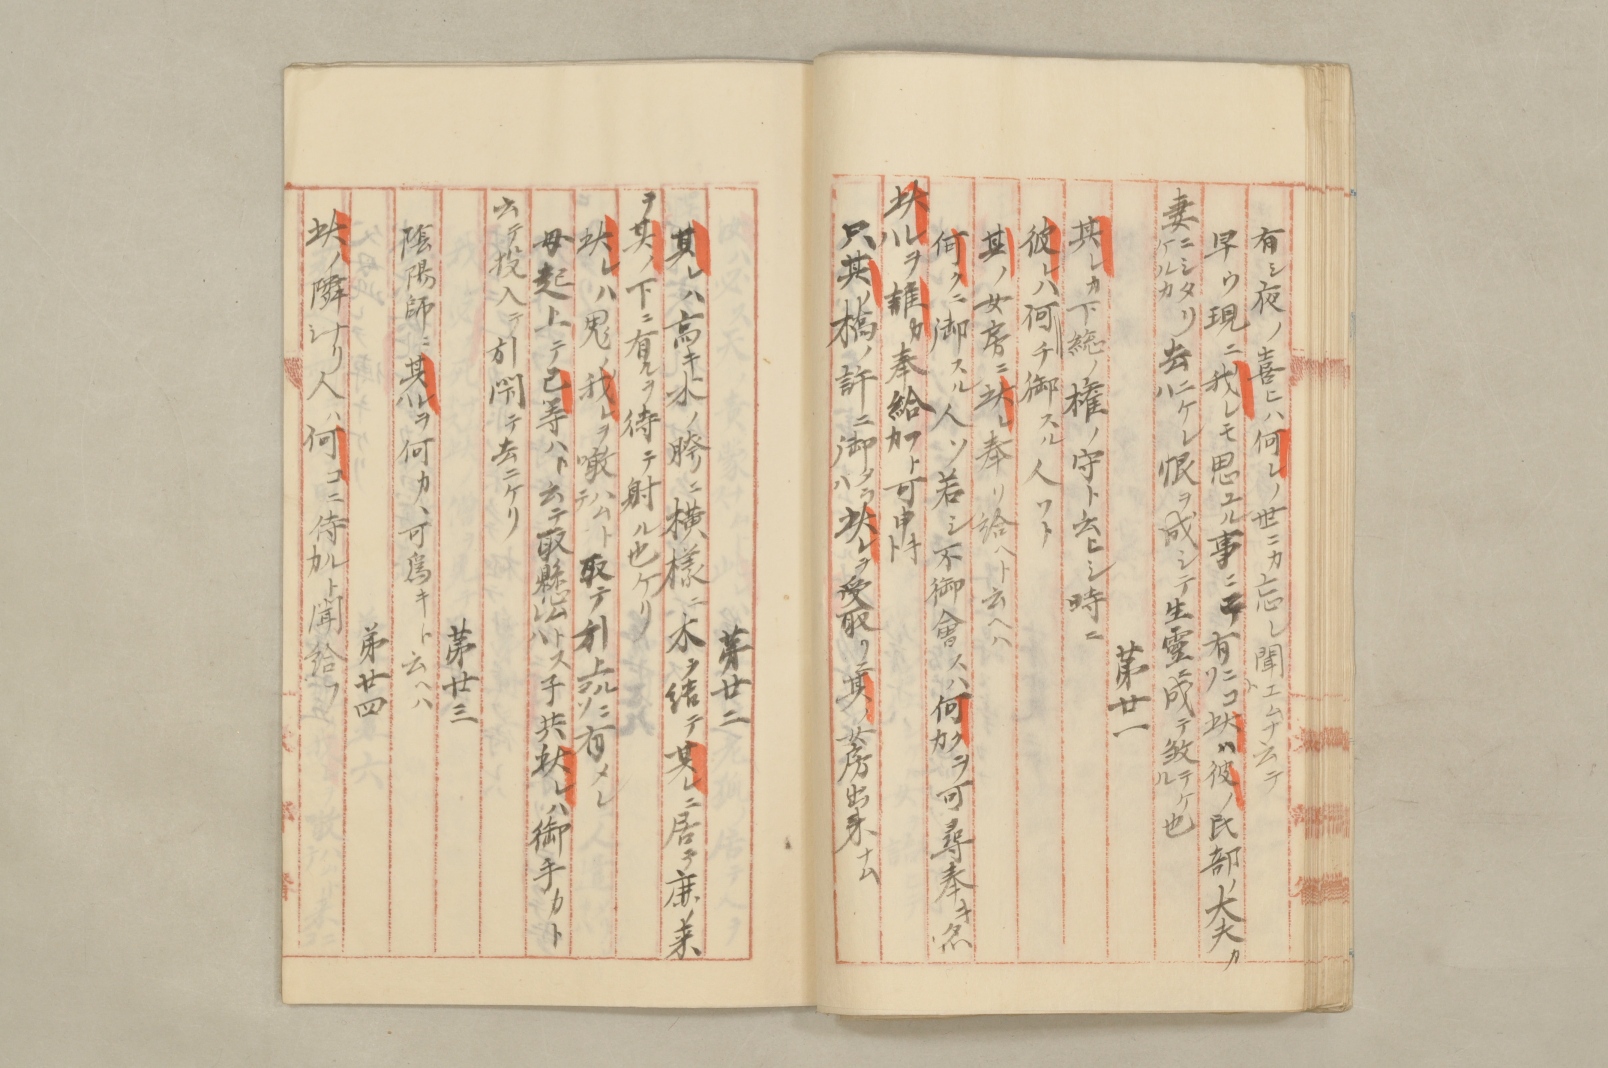 有シ夜ノ喜ヒハ何レノ世ニカ忘レ聞エムナト云テ
早ウ現ニ我レモ思エル事ニテ有リニコ此カ彼ノ民部ノ大夫カ
妻ニシタリケルカ去ニケレハ恨ヲ成シテ生霊ニ成テ敏テケル也
第廿一
其レカ下総ノ権ノ守ト云ヒシ時ニ
彼レハ何チ御スル人ソト
其ノ女房ニ此レ奉リ給ヘト云ヘハ
何クニ御スル人ソ若シ不御會スハ何カクヲ可尋奉キ
此レヲハ誰カ奉給フトカ可申キト
只其ノ橋ノ許ニ御タラハ此レヲ受取リニ其ノ女房出来ナム
第廿二
其レハ高キ木ノ胯ニ横様ニ木ヲ結テ其レニ居テ鹿ノ来
ヲ其ノ下ニ有ルヲ待テ射ル也ケリ
此レハ鬼ノ我レヲ噉ハムトテ取テ引上ルニコソ有メレ
母起上テ己等ハト云テ取懸ラムトスレハ子共此レハ御手カト
云テ投入テ引閇テ去ニケリ
第廿三
陰陽師ニ其レヲハ何カ可為キト云ヘハ
第廿四
此ノ隣ナリケル人ハ何コニ侍カルト聞給フ